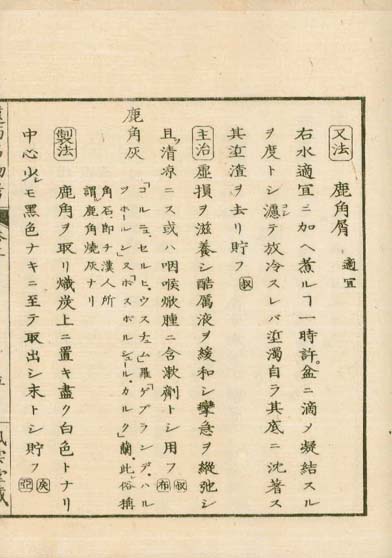 又法 鹿角屑 適宜
右水適宜ニ加ヘ煮ルヿ一時許盆ニ滴メ凝結スル
ヲ度トシ濾テ放冷スレバ渣濁自ラ其底ニ沈著ス
其渣ヲ去リ貯フ 叔
主治 虚損ヲ滋養シ酷厲液ヲ緩和シ攣急ヲ縱弛シ
且ツ清凉ニス或ハ咽喉焮腫ニ含漱劑トシ用フ 叔 布
鹿角灰 「コルニュ、セルヒ、ウスチュム」羅「ゲブランデ、ハル
ツ、ホールン」「スポスポルシュール、カルク」蘭、此俗稱
角石、即チ漢人所
謂鹿角燒灰ナリ
製法 鹿角ヲ取リ熾炭上ニ置キ盡ク白色トナリ
中心少シモ黑色ナキニ至テ取出シ末トシ貯フ